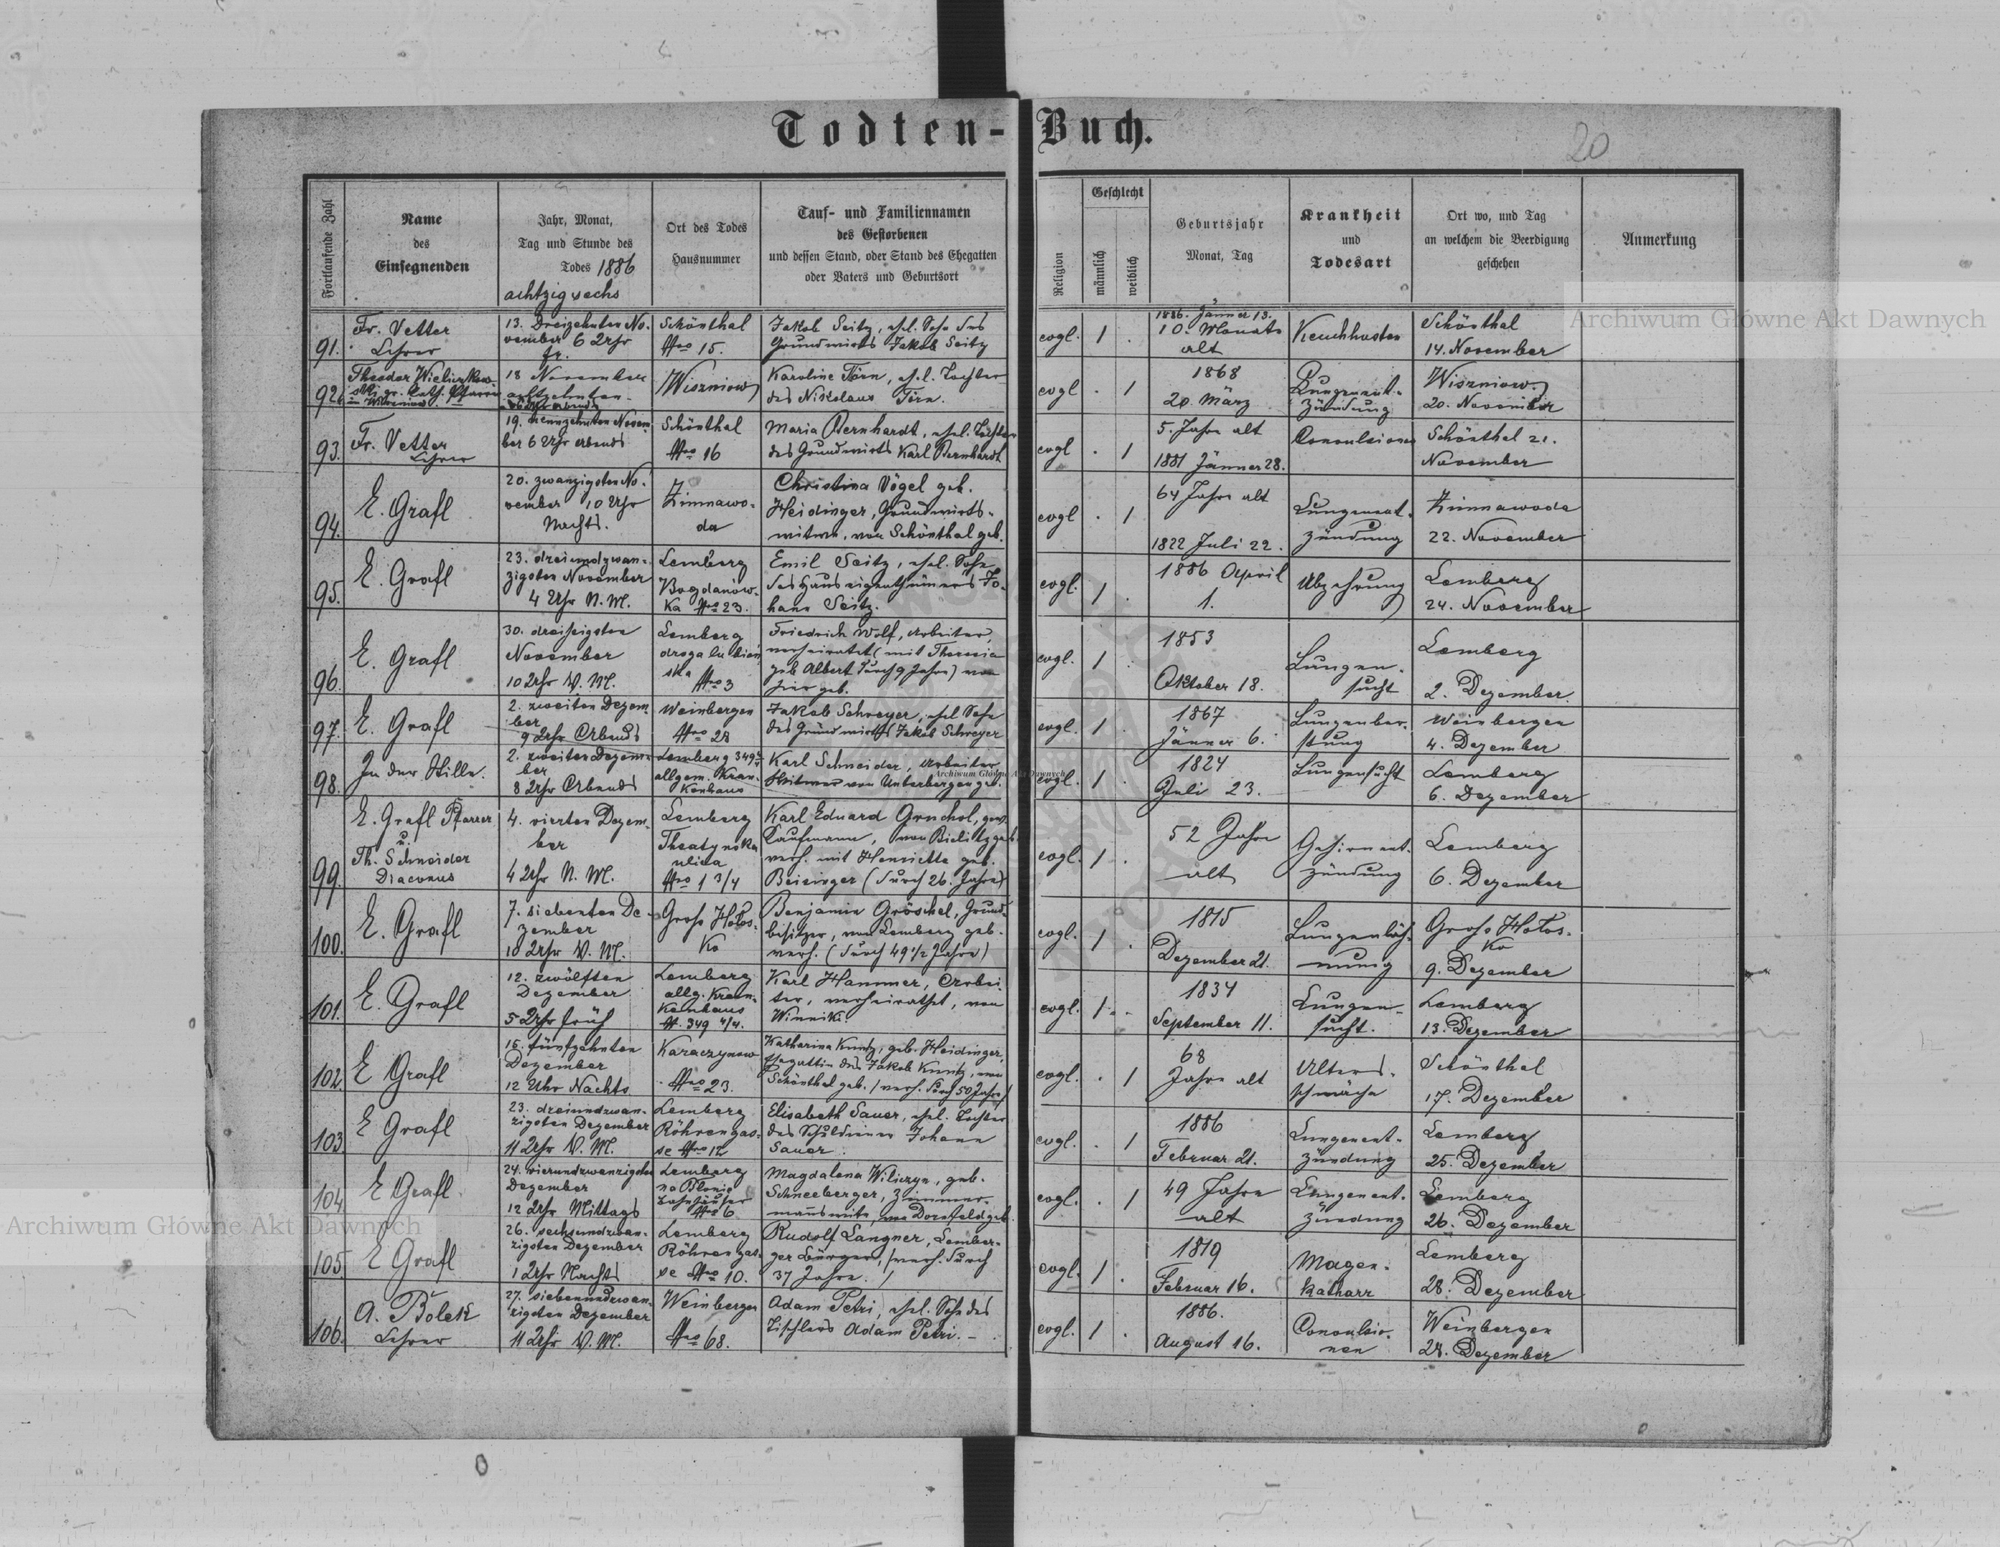 Todten-Buch.
20
Fortlaufende Zahl
Name
des
Einsegnenden
Jahr, Monat,
Tag und Stunde des
Todes 1886
achtzig sechs
Ort des Todes
Hausnummer
Tauf- und Familiennamen
des Gestorbenen
und dessen Stand, oder Stand des Ehegatten
oder Vaters und Geburtsort
Religion
Geschlecht
männlich
weiblich
Geburtsjahr
Monat, Tag
Krankheit
und
Todesart
Ort wo, und Tag
an welchem die Beerdigung
geschehen
Anmerkung
91.
Fr. Vetter
Lehrer
13. Dreizehnten No-
vember 6 Uhr
fr.
Schönthal
Nro 15.
Jakob Seitz, ehl. Sohn des
Grundwirts Jakob Seitz
evgl. 1 .
1886. Jänner 13.
10. Monate
alt
Keuchhusten
Schönthal
14. November
92.
Theodor
gr. Kath. Pfarrer
in Wiszniow.
18 November
achtzehnten
Wiszniow
Karoline Törn, ehl. Tochter
des Nikolaus Törn.
evgl . 1
1868
20. März
Lungenent-
zündung
Wiszniow
20. November
93.
Fr. Vetter
Lehrer
19. neunzehnten Novem-
ber 6 Uhr abends
Schönthal
Nro 16
Maria Bernhardt, ehel. Tochter
des Grundwirts Karl Bernhardt
evgl . 1
5. Jahre alt
1881 Jänner 28.
Convulsionen
Schönthal 21.
November
94.
E. Grafl
20. zwanzigsten No-
vember 10 Uhr
Nachts.
Zimnawo-
da
Christina Vögel geb.
Heidinger, Grundwirts-
witwe, von Schönthal geb.
evgl . 1
64 Jahre alt
1822 Juli 22.
Lungenent-
zündung
Zimnawoda
22. November
95.
E. Grafl
23. dreiundzwan-
zigsten November
4 Uhr N. M.
Lemberg
Bogdanow-
ka Nro 23.
Emil Seitz, ehl. Sohn
des Hauseigenthümers Jo-
hann Seitz.
evgl. 1 .
1886 April
1.
Abzehrung
Lemberg
24. November
96.
E. Grafl
30. dreißigsten
November
10 Uhr V. M.
Lemberg
droga lubien
ska
Nro 3
Friedrich Wolf, Arbeiter,
verheiratet (mit Theresia
geb Albert durch 9 Jahre) von
hier geb.
evgl. 1 .
1853
Oktober 18.
Lungen-
sucht
Lemberg
2. Dezember
97.
E. Grafl
2. zweiten Dezem-
ber
9 Uhr Abends
Weinbergen
Nro 28
Jakob Schreyer, ehl Sohn
des Grundwirths Jakob Schreyer
evgl. 1 .
1867
Jänner 6.
Weinbergen
4. Dezember
98.
In der Stille.
2. zweiten Dezem-
ber
8 Uhr Abends
Lemberg
allgem. Kran-
kenhaus
Karl Schneider, Arbeiter
Witwer von Unterbergen geb.
evgl. 1 .
1824
Juli 23.
Lungensucht
Lemberg
6. Dezember
99.
E. Grafl Pfarrer
u.
Th. Schneider
Diaconus
4. vierten Dezem-
ber
4 Uhr N. M.
Lemberg
Theatynska
ulica
Nro 1 3/4
Karl Eduard
Kaufmann, von Bielitz geb.
verh. mit Henriette geb.
Beisinger (durch 26. Jahre)
evgl. 1 .
52 Jahre
alt
Gehirnent-
zündung
Lemberg
6. Dezember
100.
E. Grafl
7. siebenten De-
zember
10 Uhr V. M.
Gross Holos-
ko
Benjamin Gröschel, Grund-
besitzer, von Lemberg geb.
verh. (durch 49 1/2 Jahre)
evgl. 1 .
1815
Dezember 21.
Lungenläh-
mung
Gross Holos-
ko
9. Dezember
101.
E. Grafl
12. zwölften
Dezember
5 Uhr früh
Lemberg
allg. Kran-
kenhaus
N. 349 4/4.
Karl Hammer, Arbei-
ter, verheirathet, von
Winniki.
evgl. 1 .
1834
September 11.
Lungen-
sucht.
Lemberg
13. Dezember
102
E Grafl
15. fünfzehnten
Dezember
12 Uhr Nachts
Karaczynow
Nro 23.
Katharina Kuntz, geb. Heidinger,
Ehegattin des Jakob Kuntz, von
Schönthal geb. /verh. durch 50 Jahre/
evgl. . 1
68
Jahre alt
Alters-
schwäche
Schönthal
17. Dezember
103
E Grafl
23. dreiundzwan-
zigsten Dezember
11 Uhr V. M.
Lemberg
Röhrengas-
se Nro 12
Elisabeth Sauer, ehl. Tochter
des Schuldiener Johann
Sauer.
evgl. . 1
1886
Februar 21.
Lungenent-
zündung
Lemberg
25. Dezember
104
E Grafl.
24. vierundzwanzigsten
Dezember
12 Uhr Mittags
Lemberg
na Blonie
Nro 6.
Magdalena Wiliczya, geb.
Schneeberger, Zimmer-
mannswitw, von Dornfeld geb.
evgl. . 1
49 Jahre
alt
Lungenent-
zündung
Lemberg
26. Dezember
105
E Grafl
26. sechsundzwan-
zigsten Dezember
1 Uhr Nachts
Lemberg
Röhrengas-
se Nro 10.
Rudolf Langner, Lember-
ger Bürger, /verh. durch
37 Jahre./
evgl. 1 .
1819
Februar 16.
Magen-
katharr
Lemberg
28. Dezember
106.
A. Bolek
Lehrer
27. siebenundzwan-
zigsten Dezember
11 Uhr V. M.
Weinbergen
Nro 68.
Adam Petri, ehl. Sohn des
Tischlers Adam Petri.
evgl. 1 .
1886.
August 16.
Convulsio-
nen
Weinbergen
28. Dezember
Archiwum Główne Akt Dawnych
Archiwum Główne Akt Dawnych
Archiwum Główne Akt Dawnych